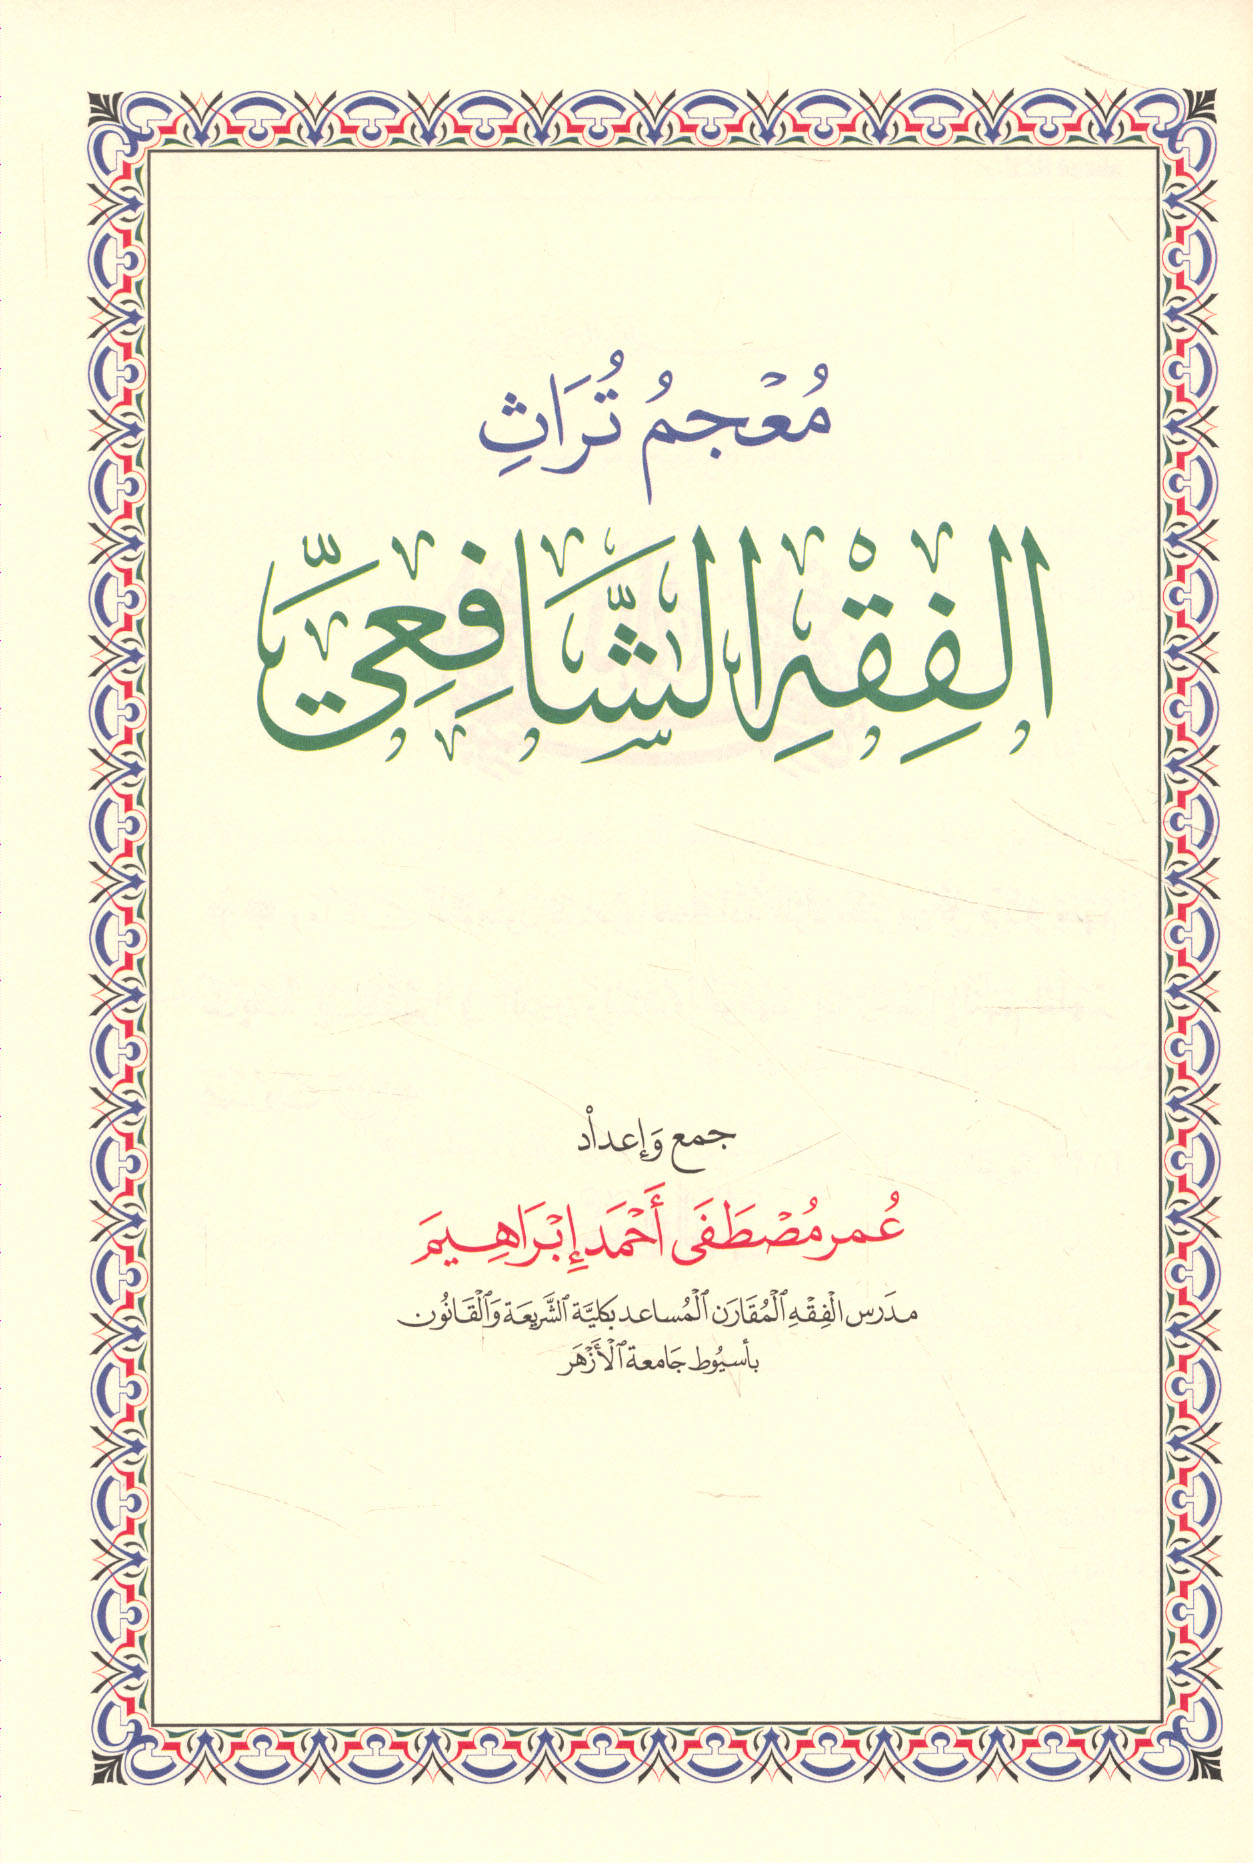 مُعْجمُ تُرَاثِ
الفِقْهِ الشَّافِعِيِّ
جمع وَإعدادْ
عُمر مُصْطَفَى أَحْمَد إِبْرَاهِيمَ
مدَرس الْفِقْهِ ٱلْمُقَارَن ٱلْمُساعد بكليَّة ٱلشَّريعَة وَٱلْقَانُون
بأسيُوط جَامعة ٱلْأَزْهَر